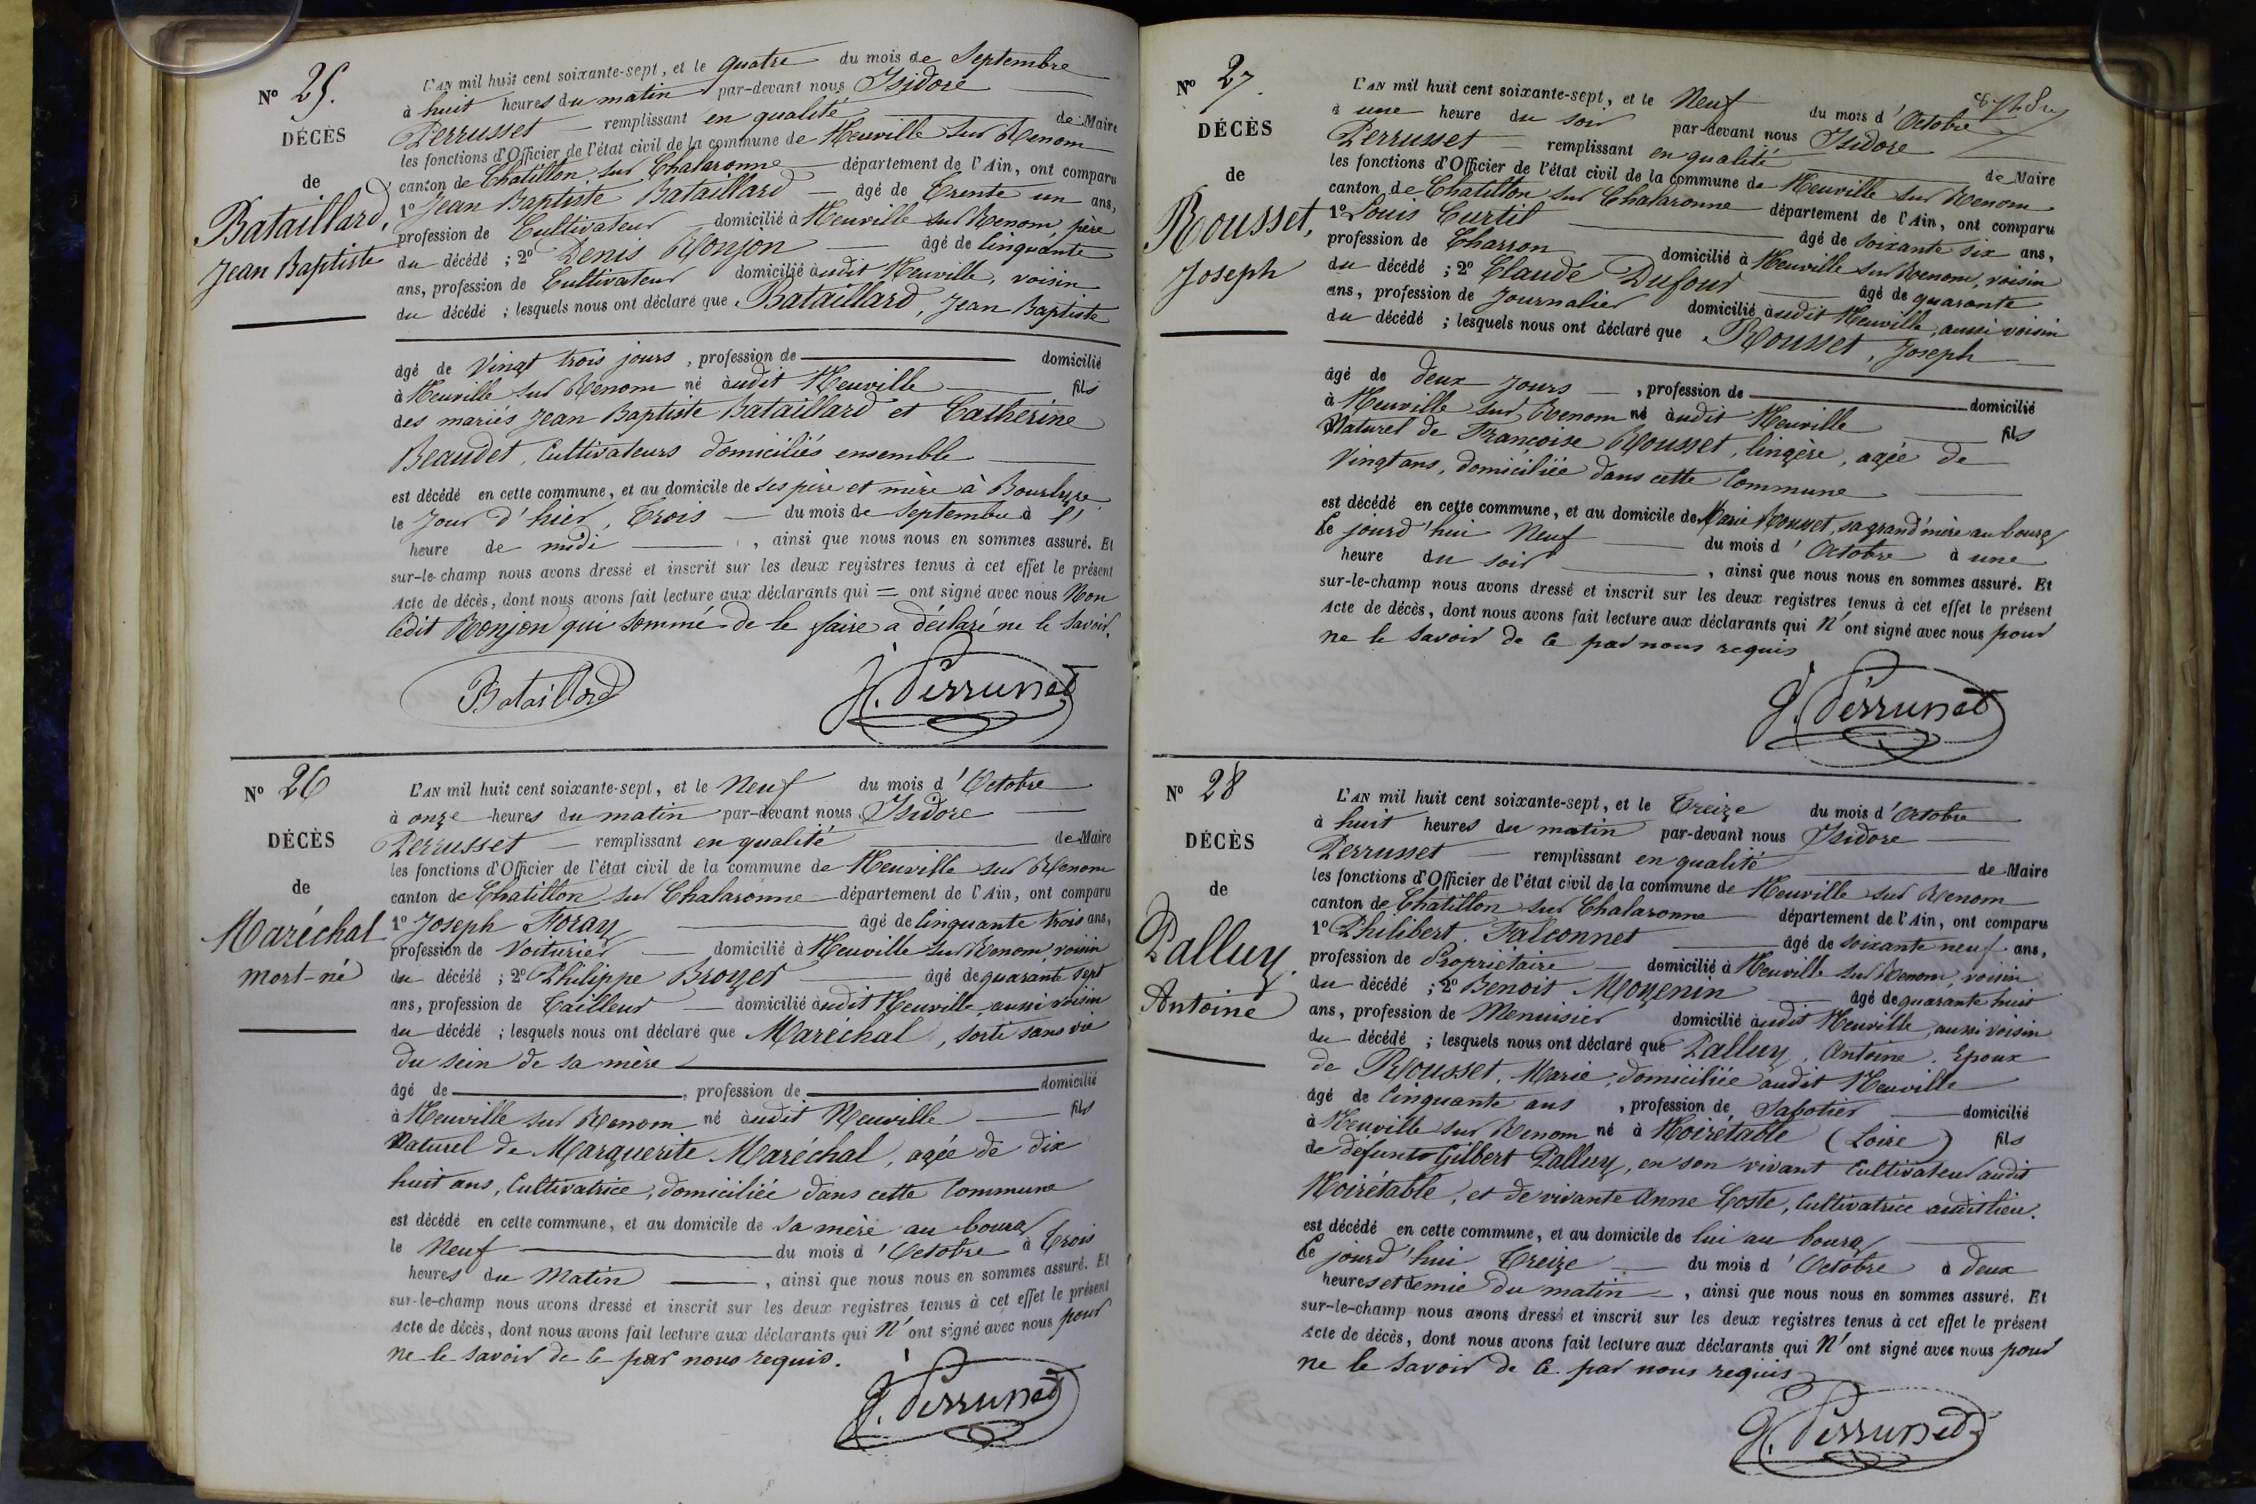 Nº 25.
DÉCÈS
de
Bataillard,
Jean Baptiste
L'AN mil huit cent soixante-sept, et le quatre du mois de Septembre
à huit heures du matin par-devant nous Isidore
Perrusset remplissant en qualité de Maire
les fonctions d'Officier de l'état civil de la commune de Neuville sur Renom
canton de Chatillon sur Chalaronne département de l'Ain, ont comparu
1º Jean Baptiste Bataillard âgé de Trente un ans,
profession de Cultivateur domicilié à Neuville sur Renom, père
du décédé ; 2º Denis Ronjon âgé de Cinquante
ans, profession de Cultivateur domicilié audit Neuville, voisin
du décédé ; lesquels nous ont déclaré que Bataillard, Jean Baptiste
âgé de Vingt trois jours, profession de domicilié
à Neuville sur Renom né audit Neuville fils
des mariés Jean Baptiste Bataillard et Catherine
Beaudet, Cultivateurs domiciliés ensemble
est décédé en cette commune, et au domicile de ses père et mère à
le Jour d'hier, Trois du mois de Septembre à l'
heure de midi, ainsi que nous nous en sommes assuré. Et
sur-le-champ nous avons dressé et inscrit sur les deux registres tenus à cet effet le présent
Acte de décès, dont nous avons fait lecture aux déclarants qui = ont signé avec nous Non
ledit Ronjon qui sommé de le faire a déclaré ne le savoir.
Bataillard
J. Perrusset
Nº 26
DÉCÈS
de
Maréchal
mort-né
L'AN mil huit cent soixante-sept, et le Neuf du mois d'Octobre
à onze heures du matin par-devant nous Isidore
Perrusset remplissant en qualité de Maire
les fonctions d'Officier de l'état civil de la commune de Neuville sur Renom
canton de Chatillon sur Chalaronne département de l'Ain, ont comparu
1º Joseph Foray âgé de Cinquante trois ans,
profession de Voiturier domicilié à Neuville sur Renom, voisin
du décédé ; 2º Philippe Broyer âgé de quarante sept
ans, profession de Tailleur domicilié audit Neuville aussi voisin
du décédé ; lesquels nous ont déclaré que Maréchal, sorti sans vie
du sein de sa mère
âgé de , profession de domicilié
à Neuville sur Renom né audit Neuville fils
Naturel de Marguerite Maréchal, agée de dix
huit ans, Cultivatrice, domiciliée dans cette Commune
est décédé en cette commune, et au domicile de sa mère au bourg
le Neuf du mois d'Octobre à Trois
heures du Matin, ainsi que nous nous en sommes assuré. Et
sur-le-champ nous avons dressé et inscrit sur les deux registres tenus à cet effet le présent
Acte de décès, dont nous avons fait lecture aux déclarants qui N'ont signé avec nous pour
ne le savoir de ce par nous requis.
J. Perrusset
Nº 27.
DÉCÈS
de
Rousset,
Joseph
L'AN mil huit cent soixante-sept, et le Neuf du mois d'Octobre
à une heure du soir par-devant nous Isidore
Perrusset remplissant en qualité de Maire
les fonctions d'Officier de l'état civil de la commune de Neuville sur Renom
canton de Chatillon sur Chalaronne département de l'Ain, ont comparu
1º Louis Curtil âgé de soixante six ans,
profession de Charron domicilié à Neuville sur Renom, voisin
du décédé ; 2º Claude Dufour âgé de quarante
ans, profession de Journalier domicilié audit Neuville, aussi voisin
du décédé ; lesquels nous ont déclaré que Rousset, Joseph
âgé de deux jours, profession de domicilié
à Neuville sur Renom né audit Neuville fils
Naturel de Françoise Rousset, lingère, agée de
Vingt ans, domiciliée dans cette Commune
est décédé en cette commune, et au domicile de Marie Rousset, sa grand'mère au bourg
le jourd'hui Neuf du mois d'Octobre à une
heure du soir, ainsi que nous nous en sommes assuré. Et
sur-le-champ nous avons dressé et inscrit sur les deux registres tenus à cet effet le présent
Acte de décès, dont nous avons fait lecture aux déclarants qui N'ont signé avec nous pour
ne le savoir de ce par nous requis
J. Perrusset
Nº 28
DÉCÈS
de
Palluy,
Antoine
L'AN mil huit cent soixante-sept, et le Treize du mois d'Octobre
à huit heures du matin par-devant nous Isidore
Perrusset remplissant en qualité de Maire
les fonctions d'Officier de l'état civil de la commune de Neuville sur Renom
canton de Chatillon sur Chalaronne département de l'Ain, ont comparu
1º Philibert Falconnet âgé de soixante neuf ans,
profession de Propriétaire domicilié à Neuville sur Renom, voisin
du décédé ; 2º Benoit Moyenin âgé de quarante huit
ans, profession de Menuisier domicilié audit Neuville, aussi voisin
du décédé ; lesquels nous ont déclaré que Palluy, Antoine, Epoux
de Rousset, Marie, domiciliée audit Neuville
âgé de Cinquante ans, profession de Sabotier domicilié
à Neuville sur Renom né à Noirétable (Loire) fils
de défunts Gilbert Palluy, en son vivant Cultivateur audit
Noirétable, et de vivante Anne Coste, Cultivatrice audit lieu.
est décédé en cette commune, et au domicile de lui au bourg
le jourd'hui Treize du mois d'Octobre à deux
heures et demie du matin, ainsi que nous nous en sommes assuré. Et
sur-le-champ nous avons dressé et inscrit sur les deux registres tenus à cet effet le présent
Acte de décès, dont nous avons fait lecture aux déclarants qui N'ont signé avec nous pour
ne le savoir de ce par nous requis
J. Perrusset